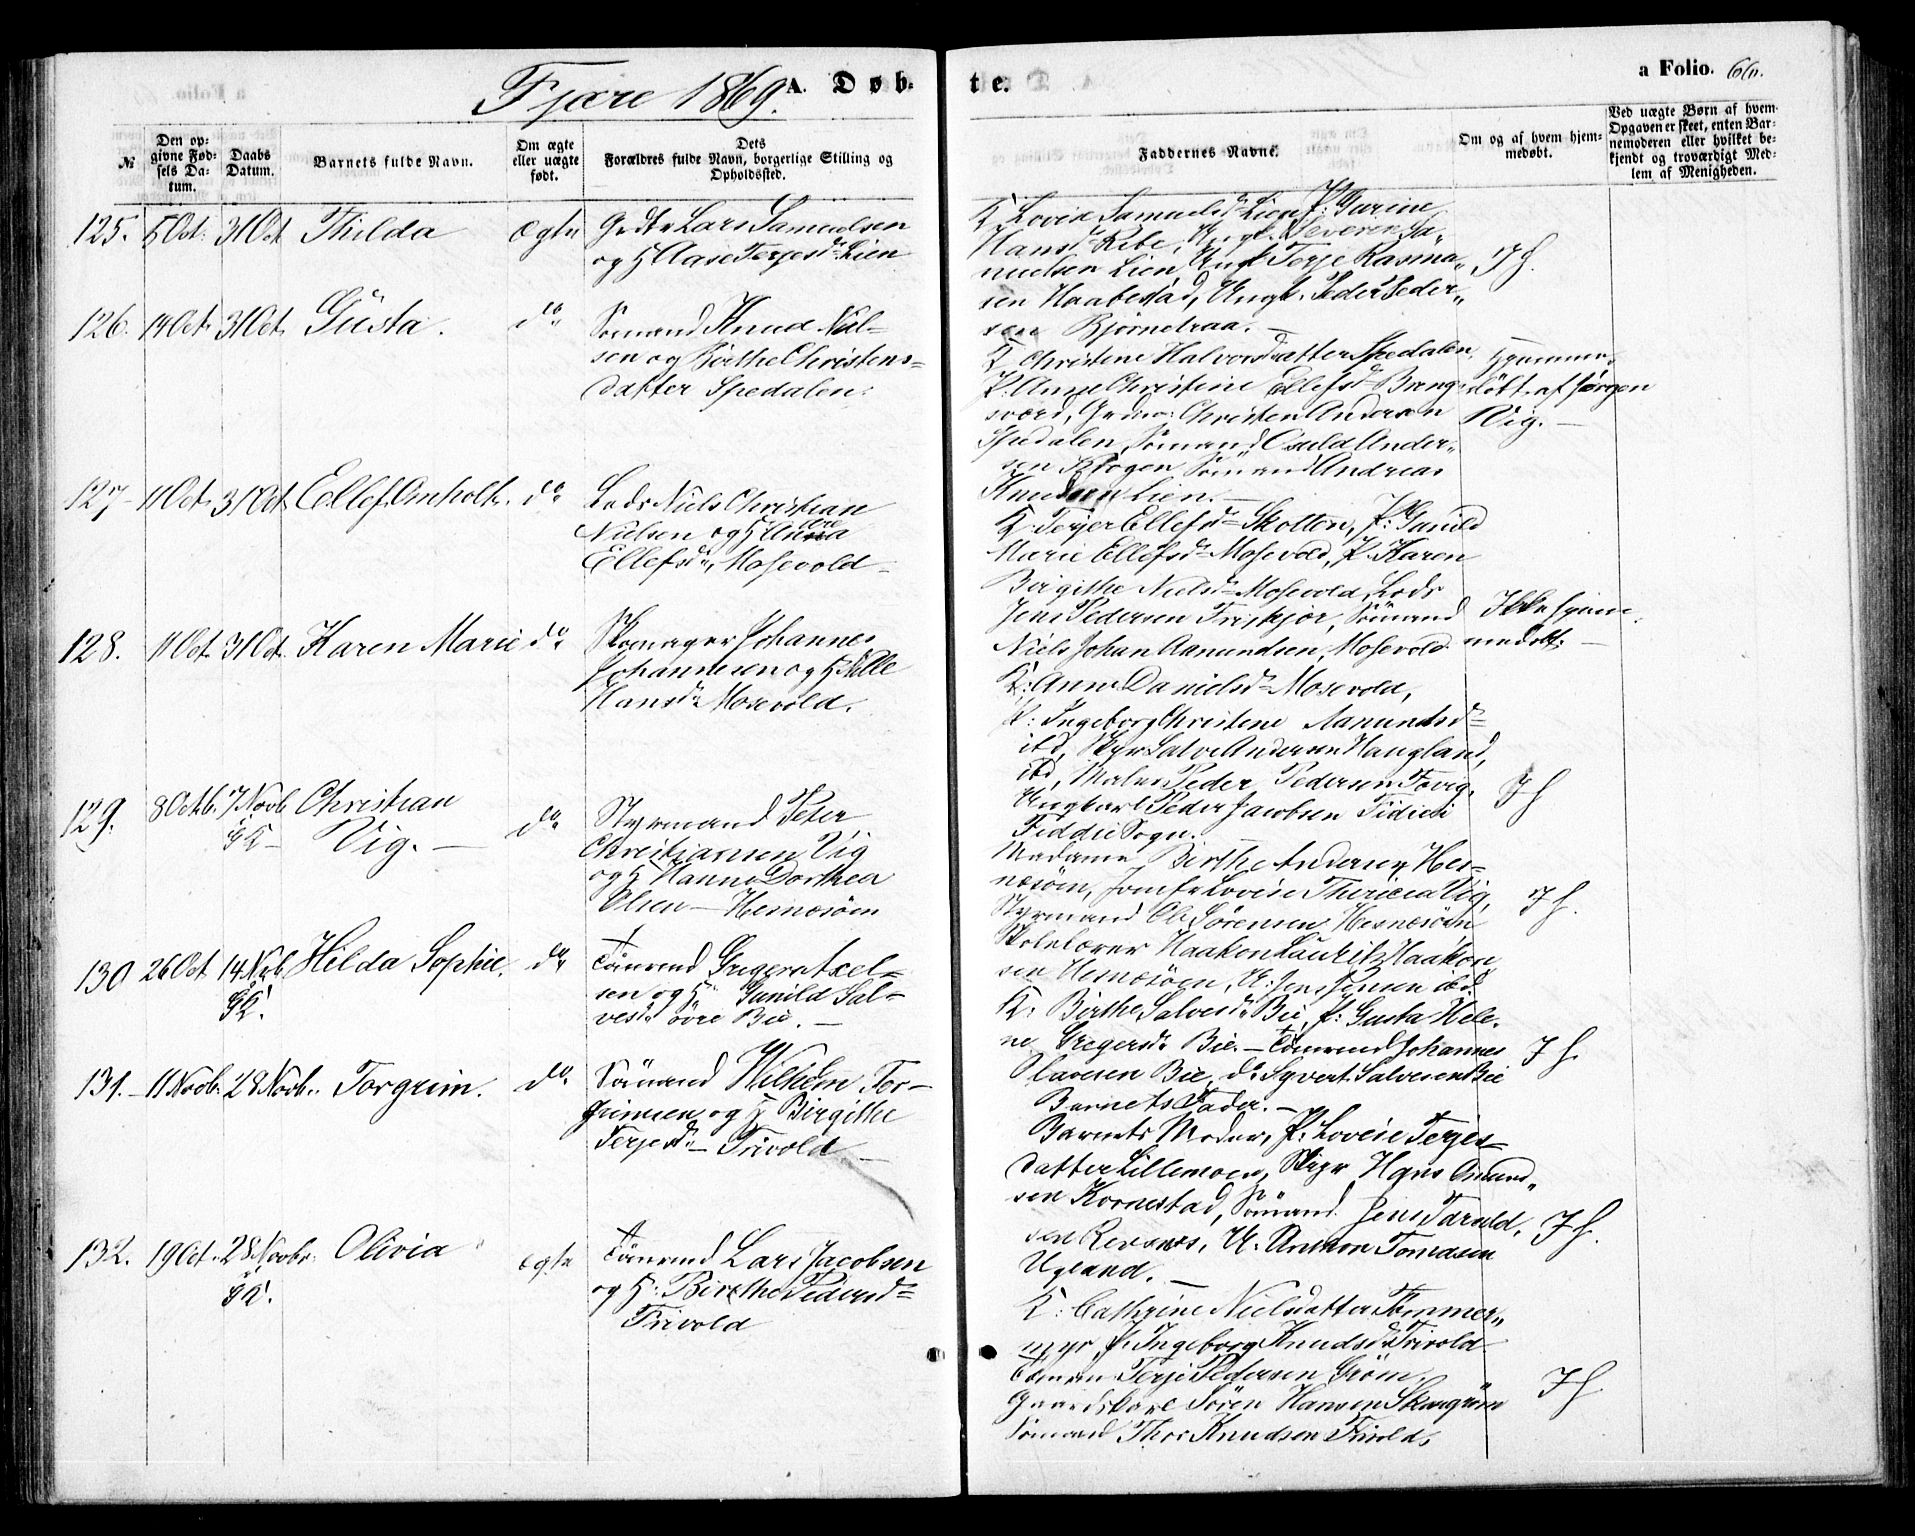 Fjære 1869.
A. Døb-
te.
a Folio. 66.
№
Den opgivne Fødsels Datum.
Daabs Datum.
Barnets fulde Navn.
Om ægte eller uægte født.
Dets Forældres fulde Navn, borgerlige Stilling og Opholdssted.
Faddernes Navne.
Om og af hvem hjemmedøbt.
Ved uægte Børn af hvem Opgaven er skeet, enten Barnemoderen eller hvilket bekjendt og troværdigt Medlem af Menigheden.
125. 5 Oct: 31 Oct Thilda ægte
Lars Samuelsen
og H Aase Terjesd. Lien
K Lovise Samuelsd. Lien, P: Gurine
Hansd. Ribe, Ungk. Severin Sa-
muelsen Lien, Ungk Terje Rasmu-
sen Haabestad, Ungk. Peder Peder-
sen Bjørnetraa. —
J H.
126. 14 Oct. 31 Oct. Gusta. do
Sømand Knud Niel-
sen og Birthe Christens-
datter Spedalen.
K Christene Halvorsdatter Spedalen,
P. Anne Christine Ellefsd. Breng-
sværd, Christen Andersen
Spedalen, Sømand Osuld Ander-
sen Sømand Andreas
Knudsen Lien. —
Hjemme-
døbt af Jørgen
Vig. —
127 11 Oct. 31 Oct. Ellef Omholt. do
Lods Niels Christian
Nielsen og H Anne
Ellefsd. Mosevold —
K. Ellefsd. Skolten, P: Gunild
Marie Ellefsd. Mosevold, P. Karen
Birgithe Nielsd. Mosevold, Lods
Jens Pedersen Friskjør, Sømand
Niels Johan Aamundsen, Mosevold.
Ikke hjem-
medøbt. —
128. 11 Oct. 31 Oct. Karen Marie do
Skomager Johannes
Johannesen og H Sille
Hansd. Mosevold.
K: Anne Danielsd. Mosevold,
P: Ingeborg Christene Aamundsd.
ibd, Salve Andersen Haugland,
ibd, Maler Peder Pedersen
Ungkarl Peder Jacobsen
Sogn. —
J H
129. 8 Octb. 7 Novb. Christian
Vig. — do
Styrmand Peter
Christiansen Vig
og H Hanne Dorthea
Olsen — Hesnesøen
Madame Birthe Andersen Hes-
nesøen, Jomfr Lovise Vig,
Styrmand Ole Sørensen Hesnesøen
Skolelærer Haakon Lauritz Haakon-
sen Hesnesøen, U: Jens Jensen ibd.
J H.
130 26 Oct 14 Nvb Hilda Sophie. do
Tømmermd Greger Axel-
sen og H Gunild Sal-
vesd. øvre Bie. —
K: Birthe Salvesd. Bie, P: Gusta Hele-
ne Gregersd. Bie. — Tømrmd Johannes
Olavesen Bie, do Syvert Salvesen Bie
Barnets Fader. —
J H.
131. — 11 Novb. 28 Novb. Torgrim. do.
Sømand Wilhelm Tor-
grimsen og H Birgithe
Terjesd. — Frivold —
Barnets Moder, P: Lovise Terjes-
datter Lillemoen, Hans Omund-
sen Kornestad, Sømand. Jens Tarald-
sen Revesnes, U: Anthon Tomasen
Ugland. —
J H.
132. 19 Oct. 28 Novbr. Olivia ægte
Tømrmd Lars Jacobsen
og H: Birethe Pedersd.
Frivold
K: Cathrine Nielsdatter Tømmer-
myr, P. Ingeborg Knudsd. Frivold
Tømrm. Terje Pedersen Grøm,
Gaardskarl Søren Hansen
Sømand Thor Knudsen Frivold.
J H.